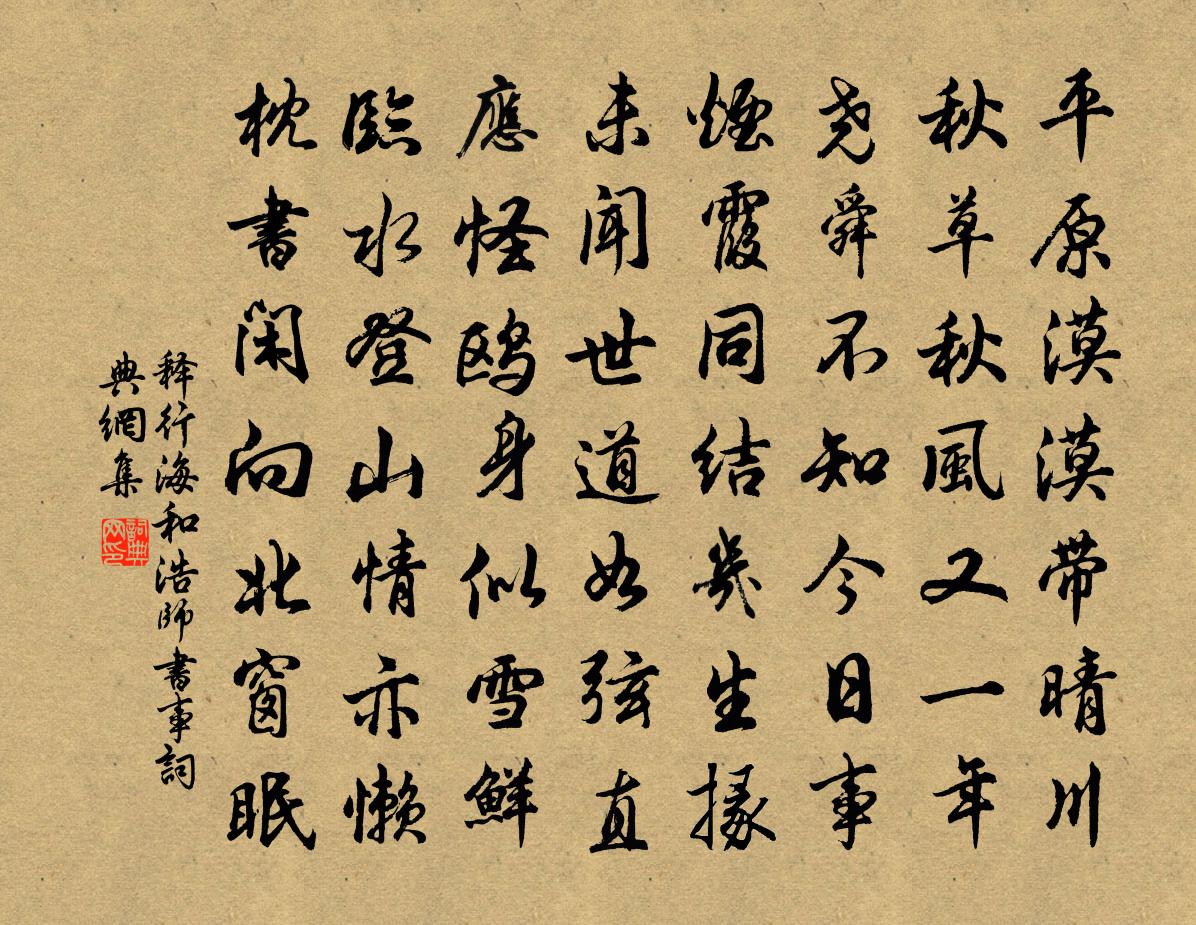 平原漠漠带晴川
秋草秋風又一年
尧舜不知今日事
煙霞同结幾生掾
未闻世道如弦直
應怪鸥身似雪鮮
臨水登山情亦懒
枕書闲向北窗眠
释行海和浩師書事詞
典網集
詞典网印